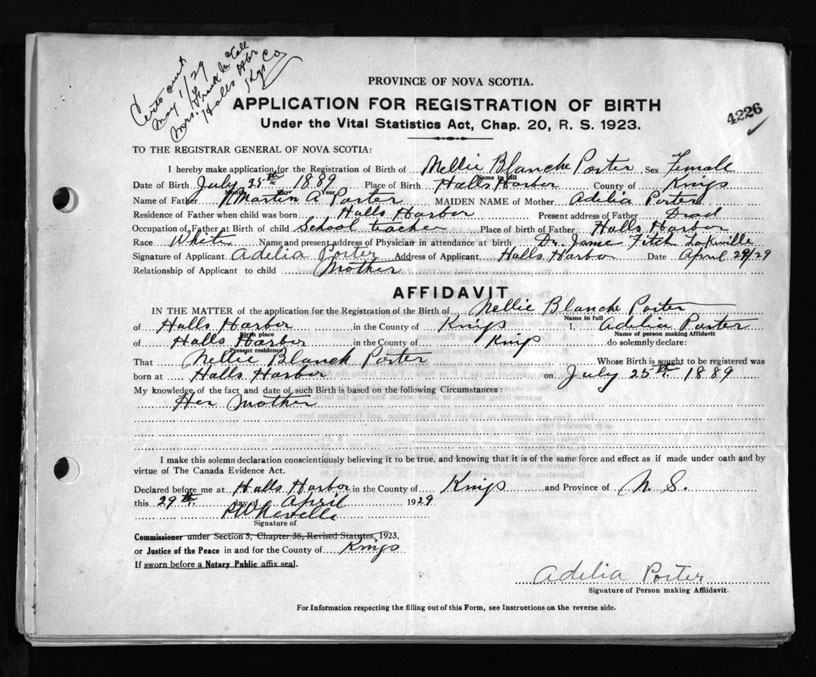 Cert out
May 1/29
Mrs. Fred Mc Call
Halls Hbr
Kgs Co
PROVINCE OF NOVA SCOTIA.
APPLICATION FOR REGISTRATION OF BIRTH
4226
Under the Vital Statistics Act, Chap. 20, R. S. 1923.
TO THE REGISTRAR GENERAL OF NOVA SCOTIA:
I hereby make application for the Registration of Birth of Nellie Blanche Porter Sex Female
Name in full
Date of Birth July 25th 1889 Place of Birth Halls Harbor County of Kings
Month Day Year
Name of Father Martin A Porter MAIDEN NAME of Mother Adelia Porter
Residence of Father when child was born Halls Harbor Present address of Father Dead
Occupation of Father at Birth of child School teacher Place of birth of Father Halls Harbor
Race White Name and present address of Physician in attendance at birth Dr. Jame Fitch
Signature of Applicant Adelia Porter Address of Applicant Halls Harbor Date April 29/29
Relationship of Applicant to child Mother
AFFIDAVIT
IN THE MATTER of the application for the Registration of the Birth of Nellie Blanch Porter
Name in full
of Halls Harbor in the County of Kings I, Adelia Porter
Birth place Name of person making Affidavit
of Halls Harbor in the County of Kings do solemnly declare:
Present residence
That Nellie Blanch Porter Whose Birth is sought to be registered was
born at Halls Harbor on July 25th 1889
My knowledge of the fact and date of such Birth is based on the following Circumstances:
Her Mother
I make this solemn declaration conscientiously believing it to be true, and knowing that it is of the same force and effect as if made under oath and by
virtue of The Canada Evidence Act.
Declared before me at Halls Harbor in the County of Kings and Province of N. S.
this 29th day of April 1929
Signature of
Commissioner under Section 3, Chapter 36, Revised Statutes, 1923,
or Justice of the Peace in and for the County of Kings
If sworn before a Notary Public affix seal.
Adelia Porter
Signature of Person making Affidavit.
For Information respecting the filling out of this Form, see Instructions on the reverse side.